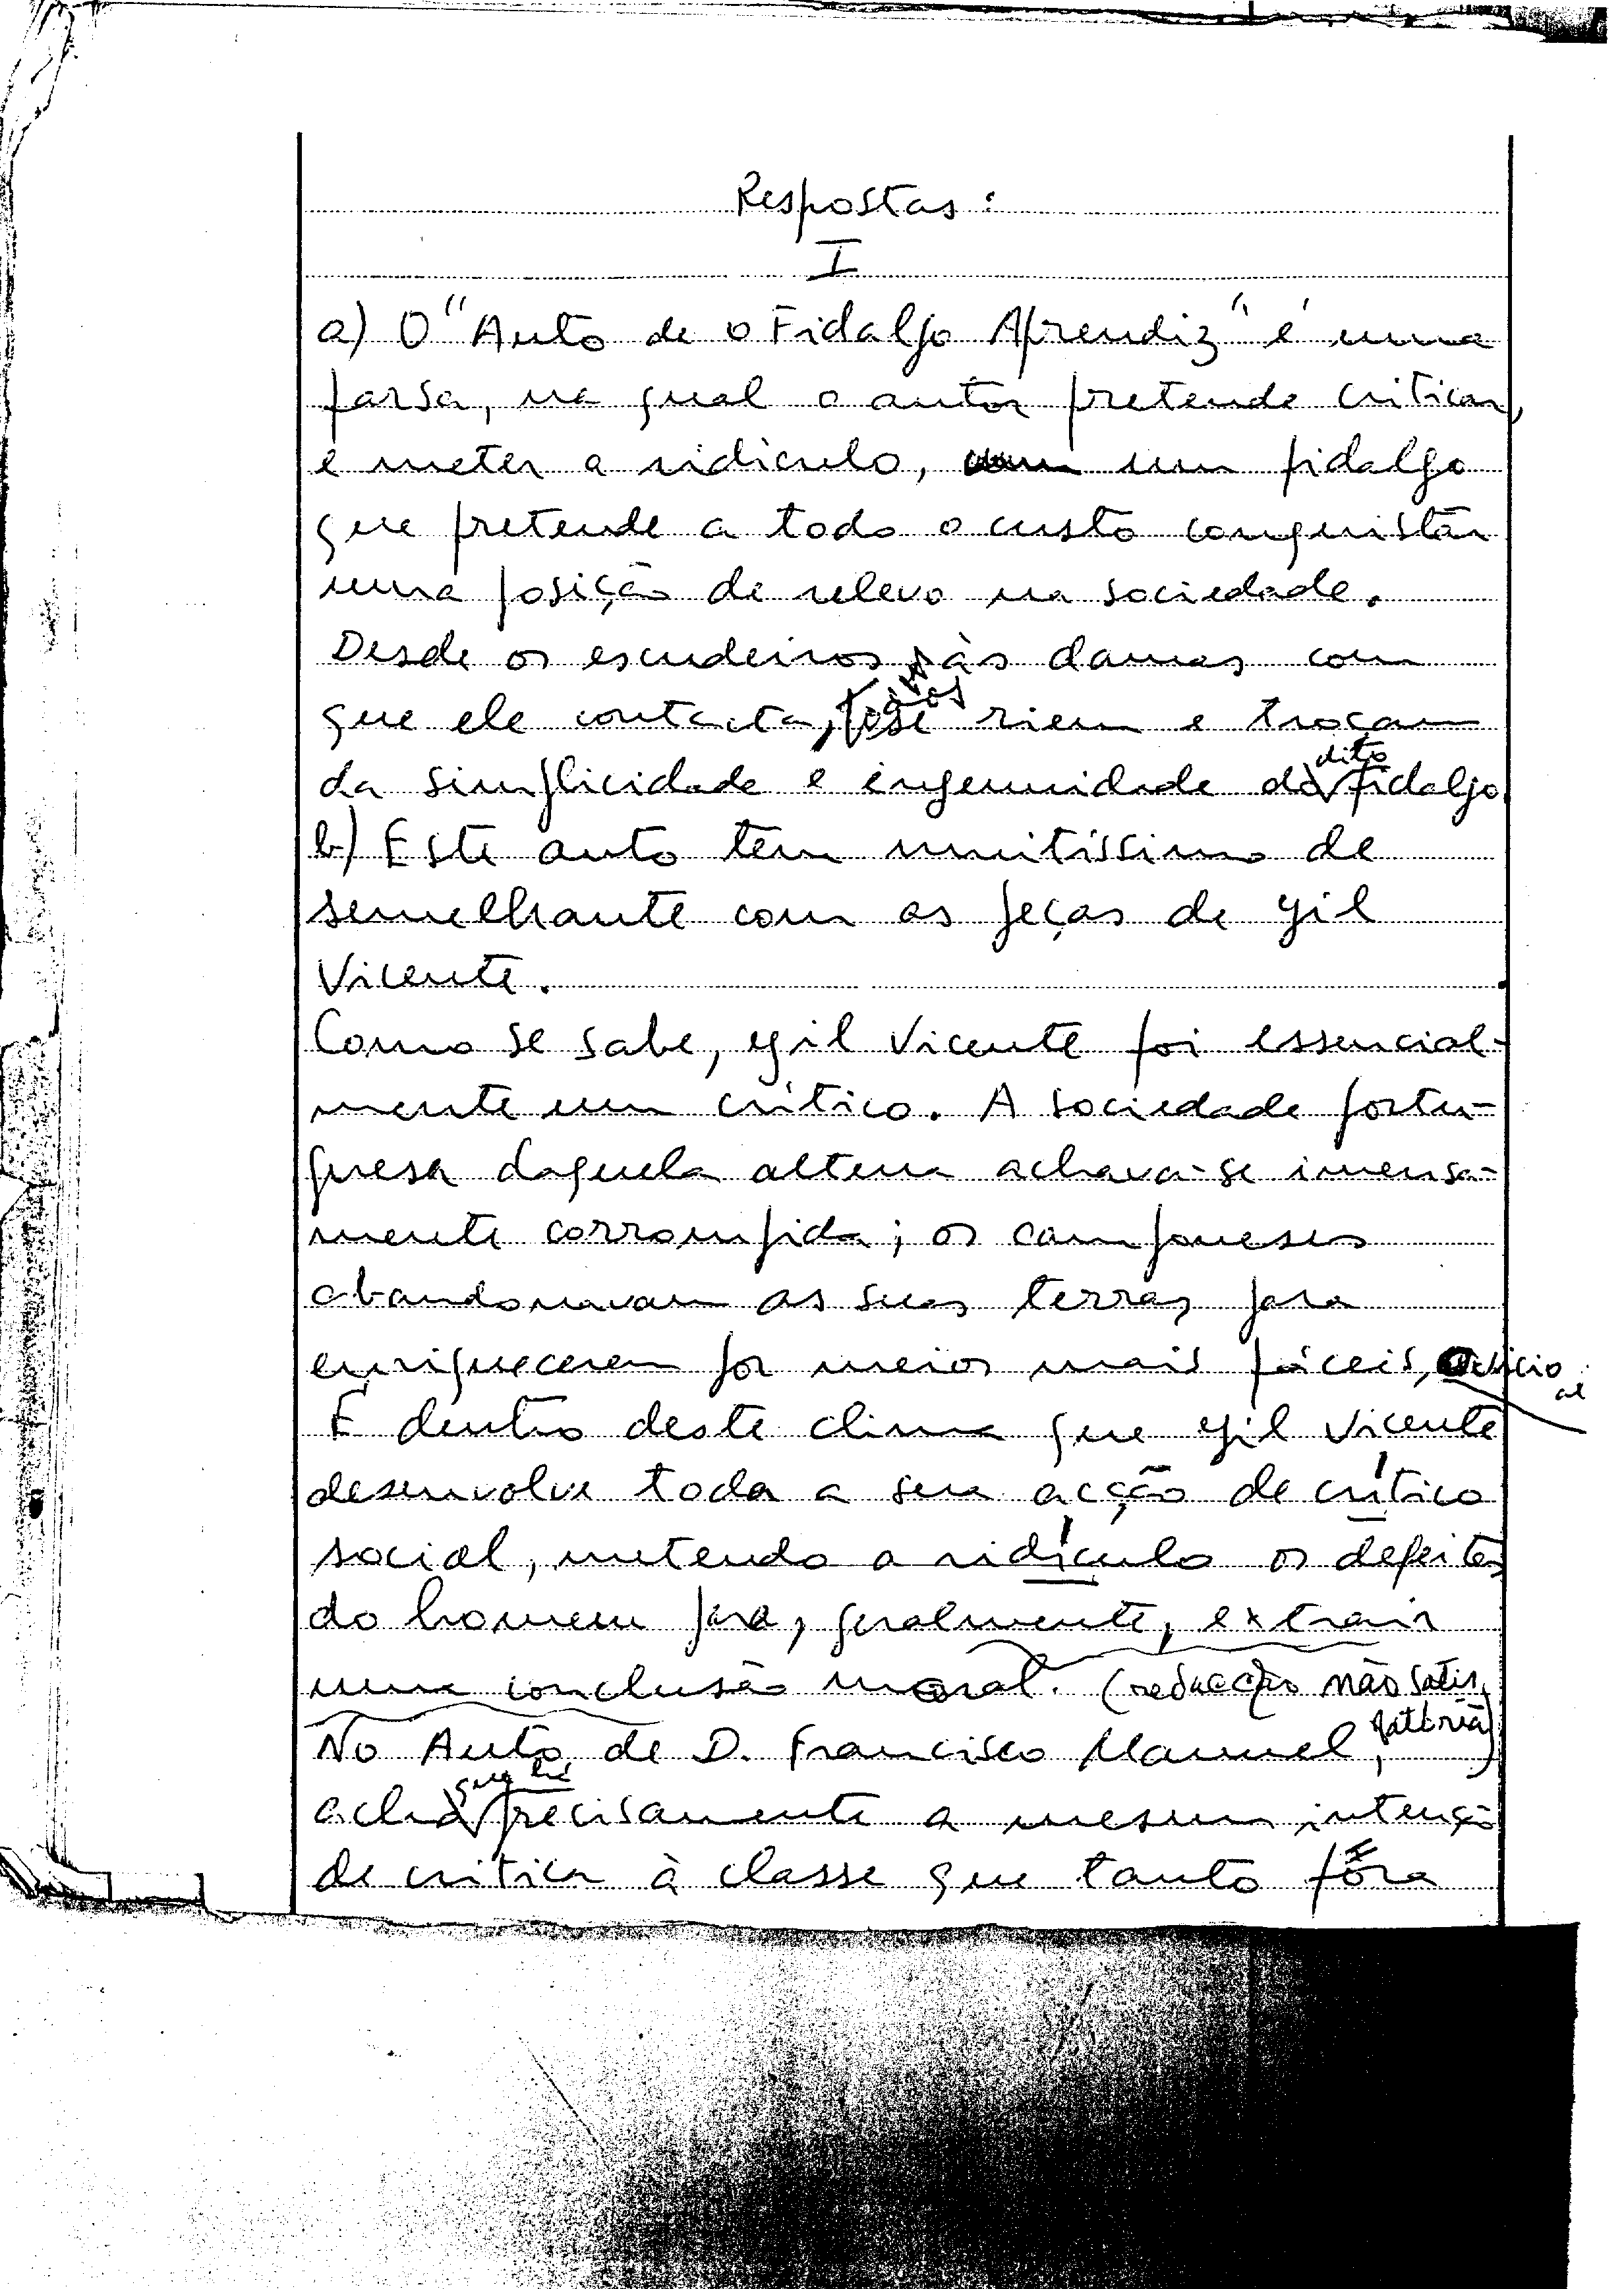 Respostas:
I
a) O "Auto de o Fidalgo Aprendiz" é uma
farsa, na qual o autor pretende criticar,
e meter a ridiculo, um fidalgo
que pretende a todo o custo conquistar
uma posição de relevo na sociedade.
Desde os escudeiros às damas com
que ele contacta, todos se riem e troçam
da simplicidade e ingenuidade do dito fidalgo
b) Este auto tem muitíssimo de
semelhante com as peças de Gil
Vicente.
Como se sabe, Gil Vicente foi essencial-
mente um crítico. A sociedade portu-
guesa daquela altura achava-se imensa-
mente corrompida; os camponeses
abandonavam as suas terras para
enriquecerem por meios mais fáceis,
É dentro deste clima que Gil Vicente
desenvolve toda a sua acção de crítico
social, metendo a ridículo os defeitos
do homem para, geralmente, extrair
uma conclusão moral. (redacção não satis
fatória)
No Auto de D. Francisco Manuel,
acho que há precisamente a mesma intenção
de critica à classe que tanto fôra